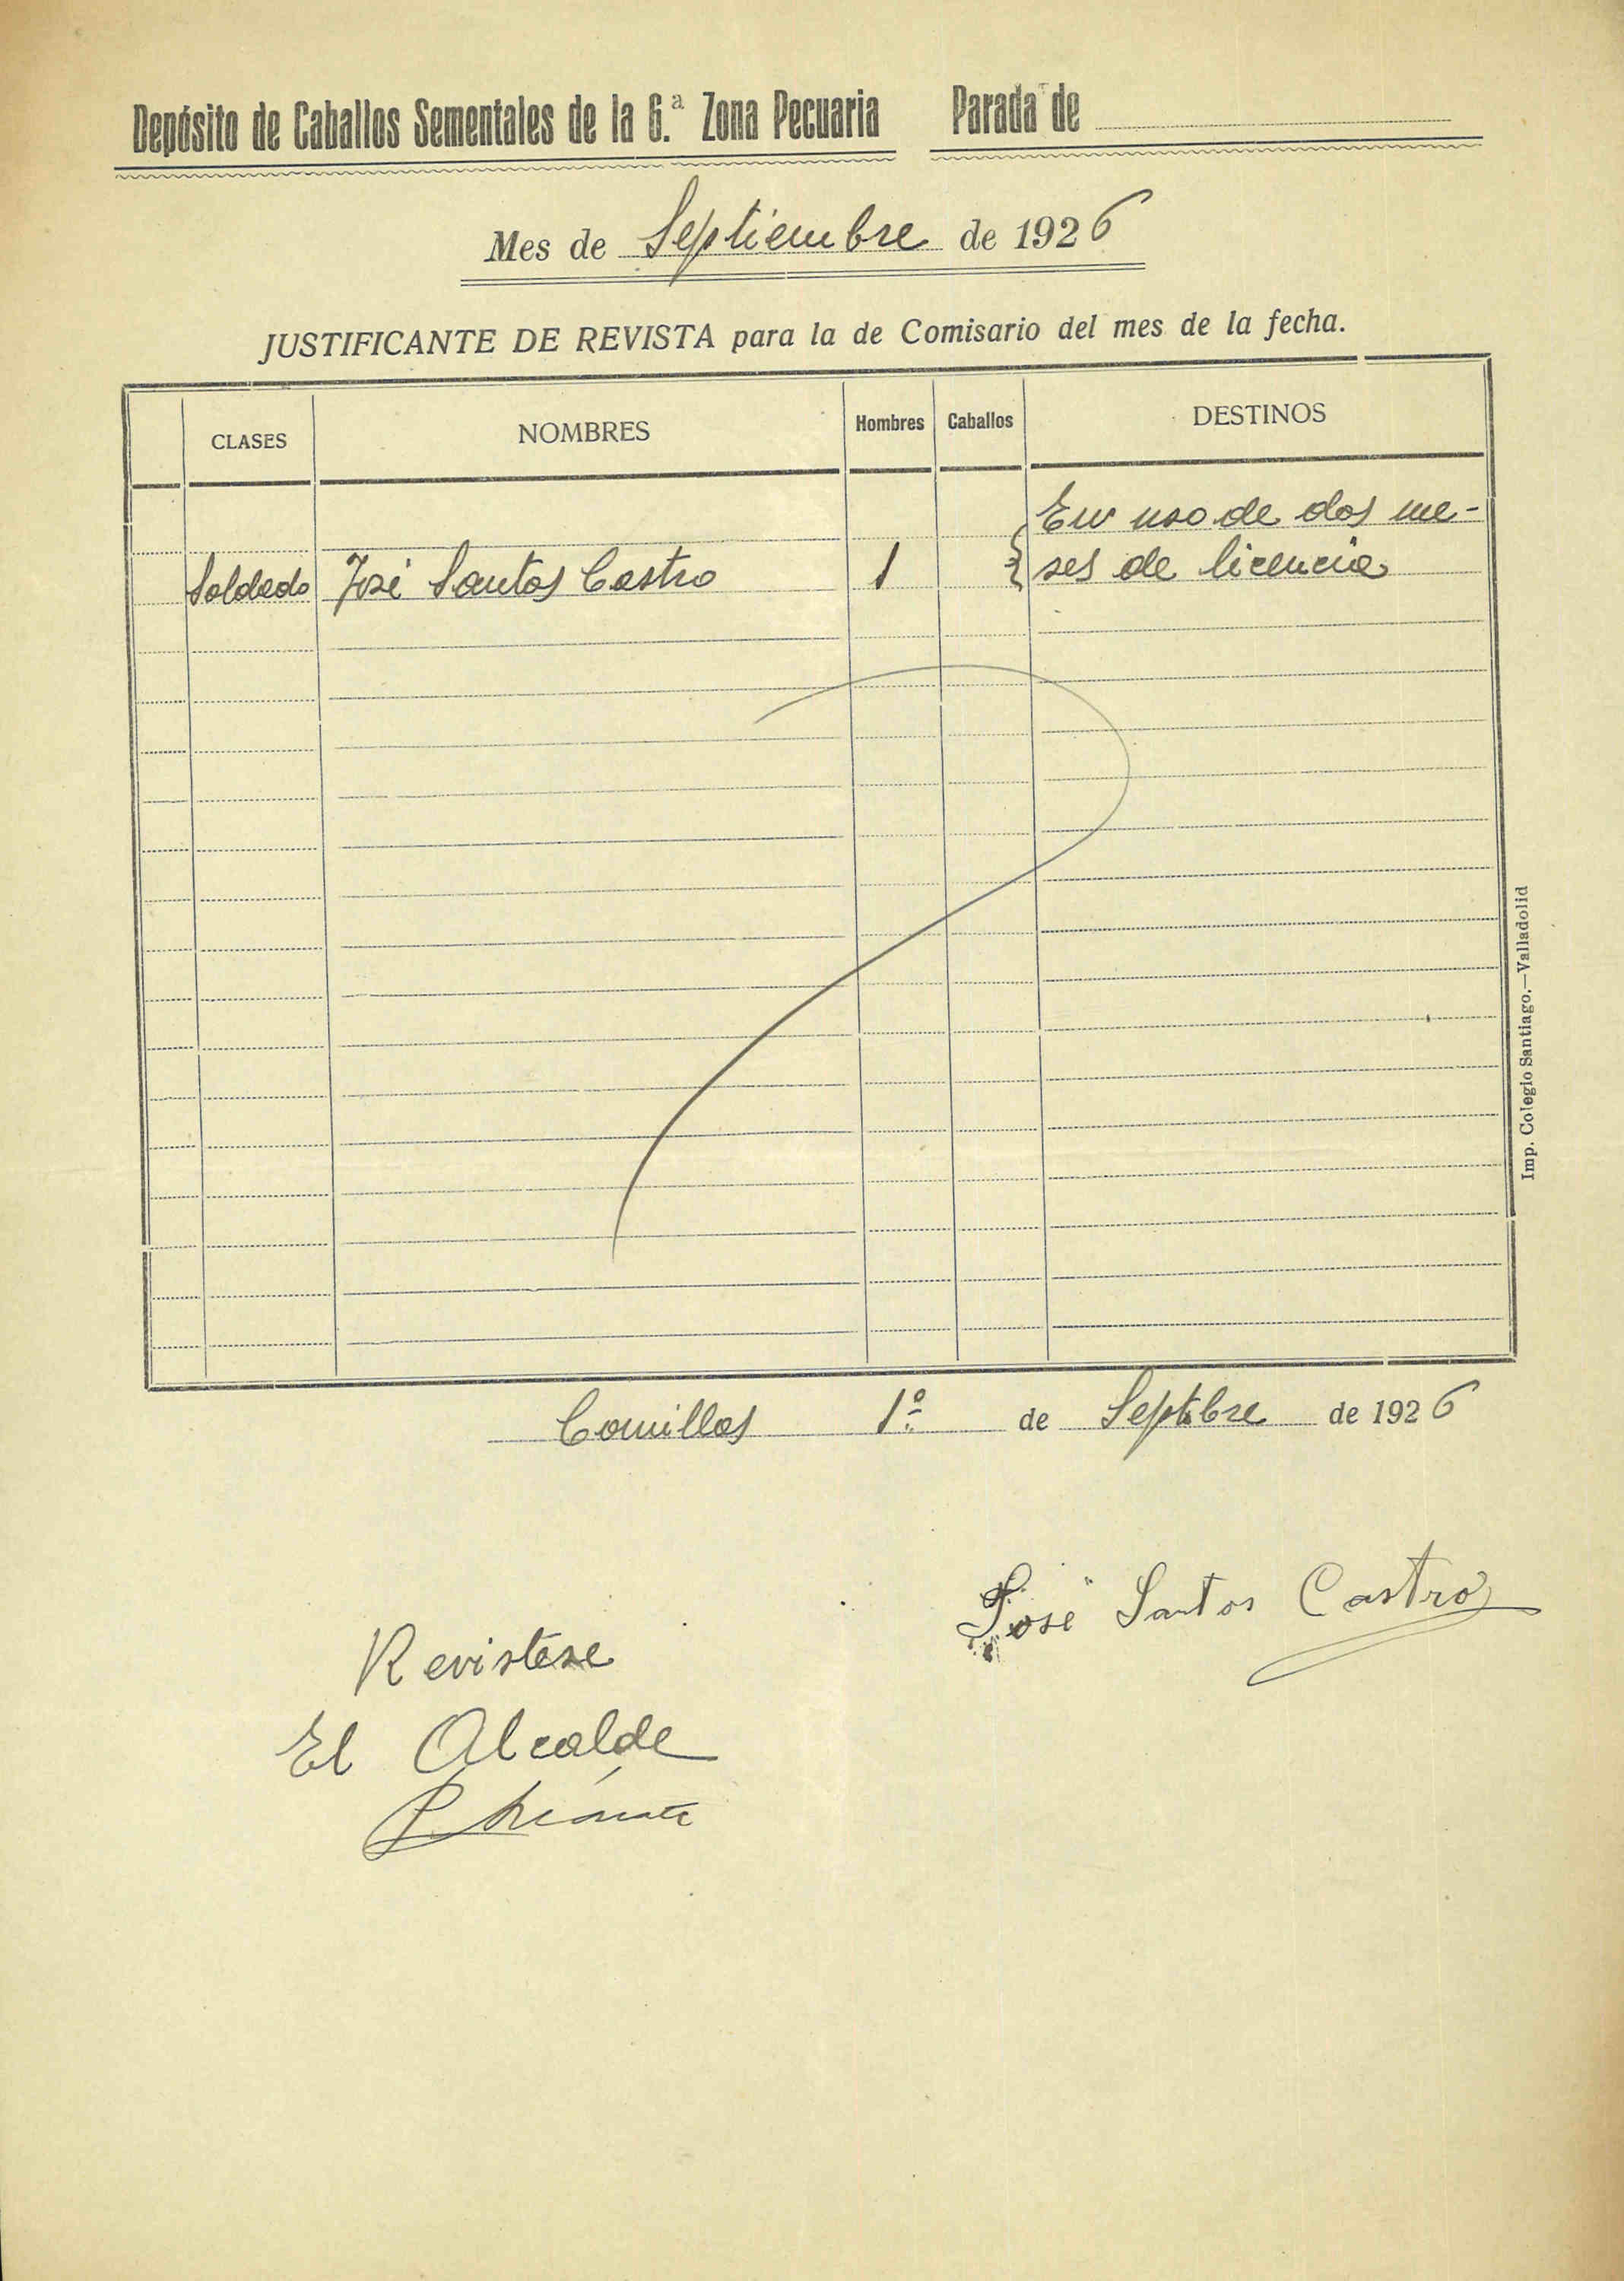 Depósito de Caballos Sementales de la 6.ª Zona Pecuaria Parada de
Mes de Septiembre de 1926
JUSTIFICANTE DE REVISTA para la de Comisario del mes de la fecha.
CLASES NOMBRES Hombres Caballos DESTINOS
En uso de dos me-
Soldado José Santos Castro 1 ses de licencia
Imp. Colegio Santiago.—Valladolid
Comillas 1º de Septbre de 1926
José Santos Castro
Revistese
El Alcalde